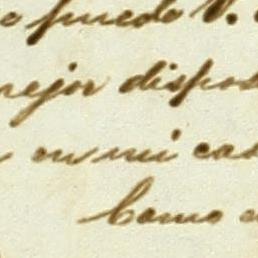 puede V.
mejor dispos
en mi cas
Como